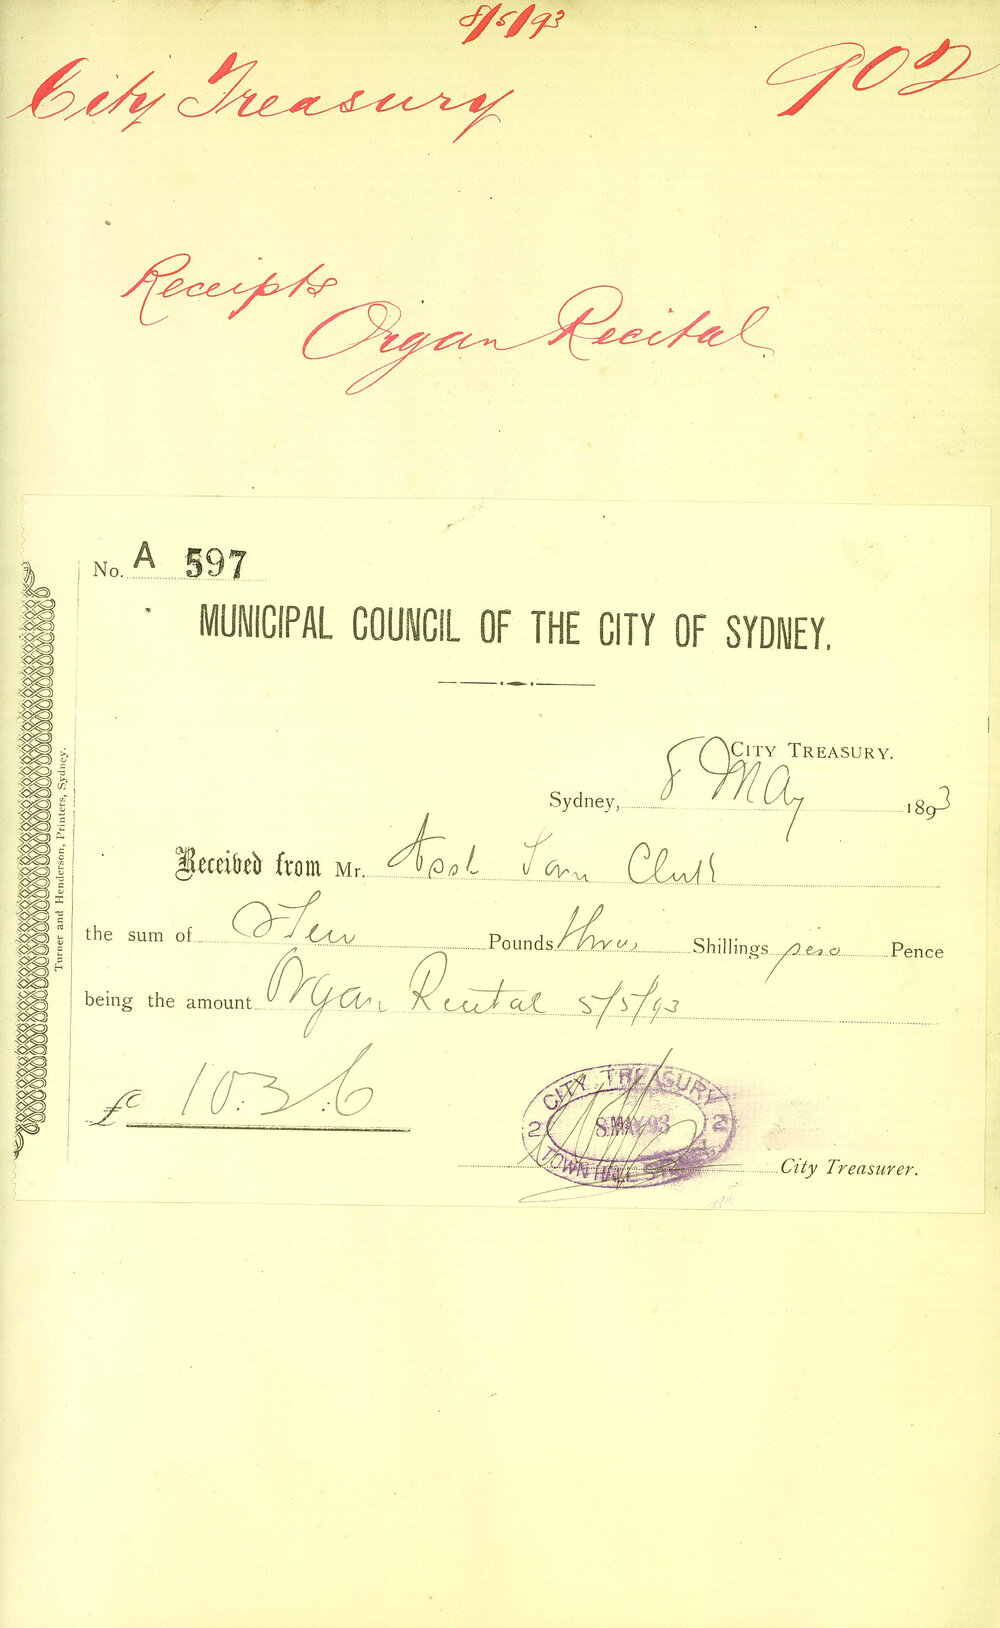 8/5/93
City Treasury 902
Receipts
Organ Recital
No. A 597
MUNICIPAL COUNCIL OF THE CITY OF SYDNEY.
CITY TREASURY.
Sydney, 8 May 1893
Received from Mr. Asst Town Clerk
the sum of Ten Pounds three Shillings Pence
being the amount Organ Recital 5/5/93
£ 10:3:6
CITY TREASURY
2 8 MAY 93 2
TOWN HALL
City Treasurer.
Turner and Henderson, Printers, Sydney.